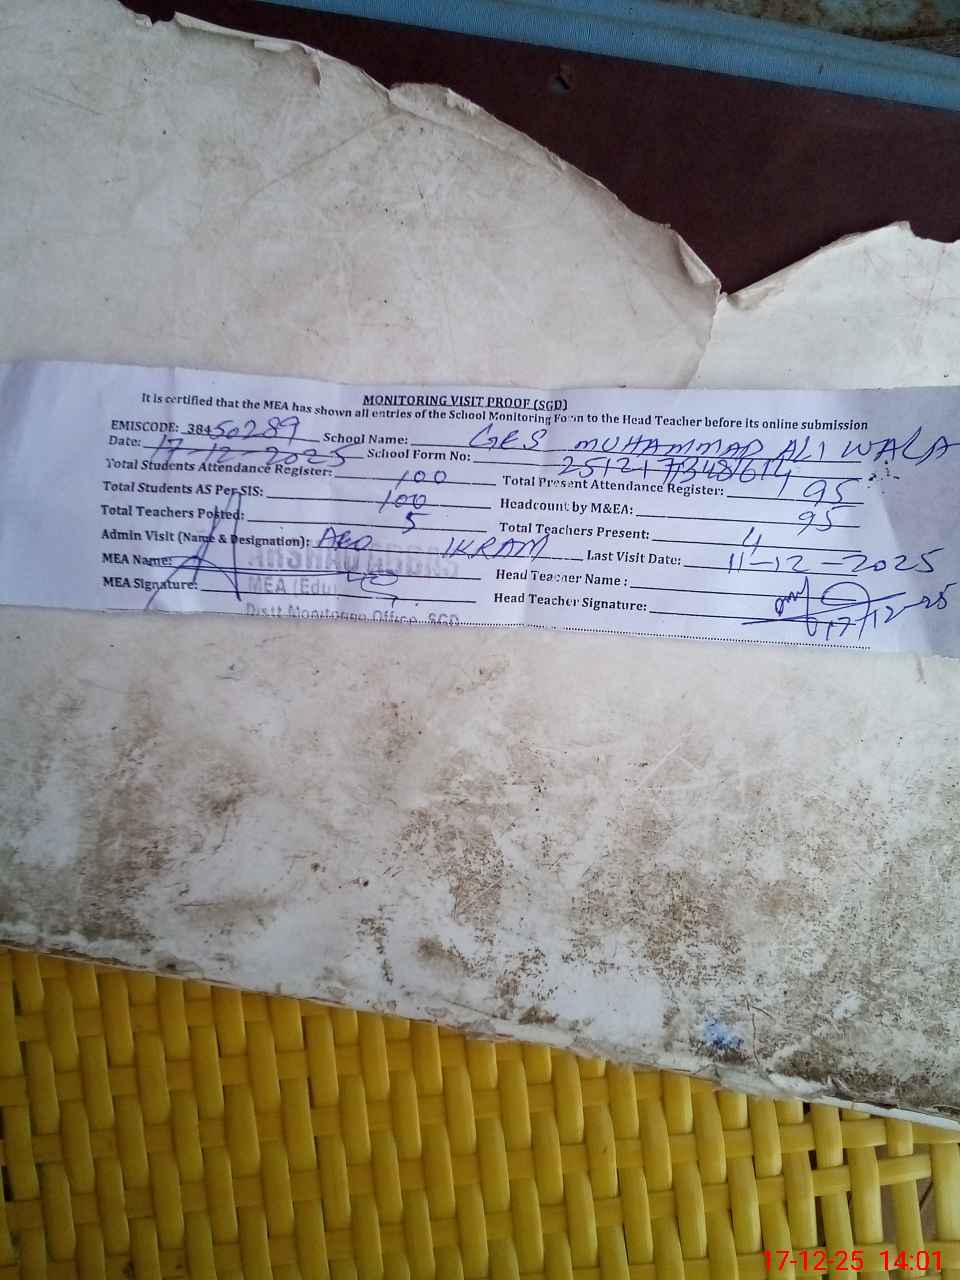 MONITORING VISIT PROOF (SGD)
It is certified that the MEA has shown all entries of the School Monitoring Form to the Head Teacher before its online submission
EMISCODE: 38450289 School Name: GES MUHAMMAD ALI WALA
Date: 17-12-2025 School Form No:
Total Students Attendance Register: 100 Total Present Attendance Register: 95
Total Students AS Per SIS: 100 Headcount by M&EA: 95
Total Teachers Posted: 5 Total Teachers Present: 4
Admin Visit (Name & Designation): AEO IKRAM Last Visit Date: 11-12-2025
MEA Name: Head Teacher Name :
MEA Signature: MEA (Edu) Head Teacher Signature: 17/12-25
Distt Monitoring Office, SGD
17-12-25 14:01